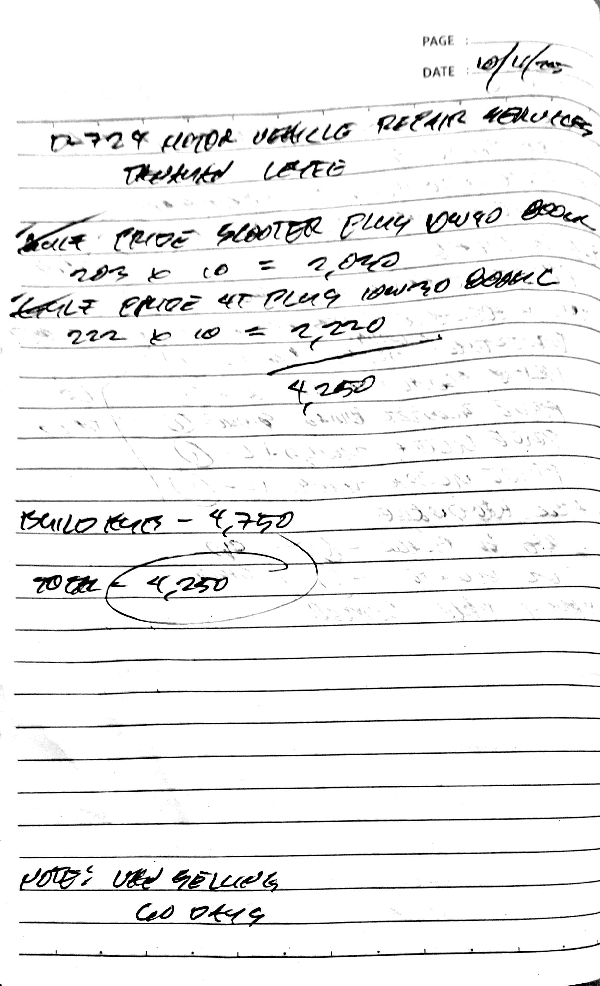 PAGE :
DATE : 10/11/2025
D-724 MOTOR VEHICLE REPAIR SERVICES
TANAUAN LEYTE
PRIDE SCOOTER PLUS 10W40 800ML
203 x 10 = 2,030
PRIDE 4T PLUS 10W30 800ML
222 x 10 = 2,220
4,250
- 4,750
TOTAL - 4,250
NOTE: VAN SELLING
60 DAYS